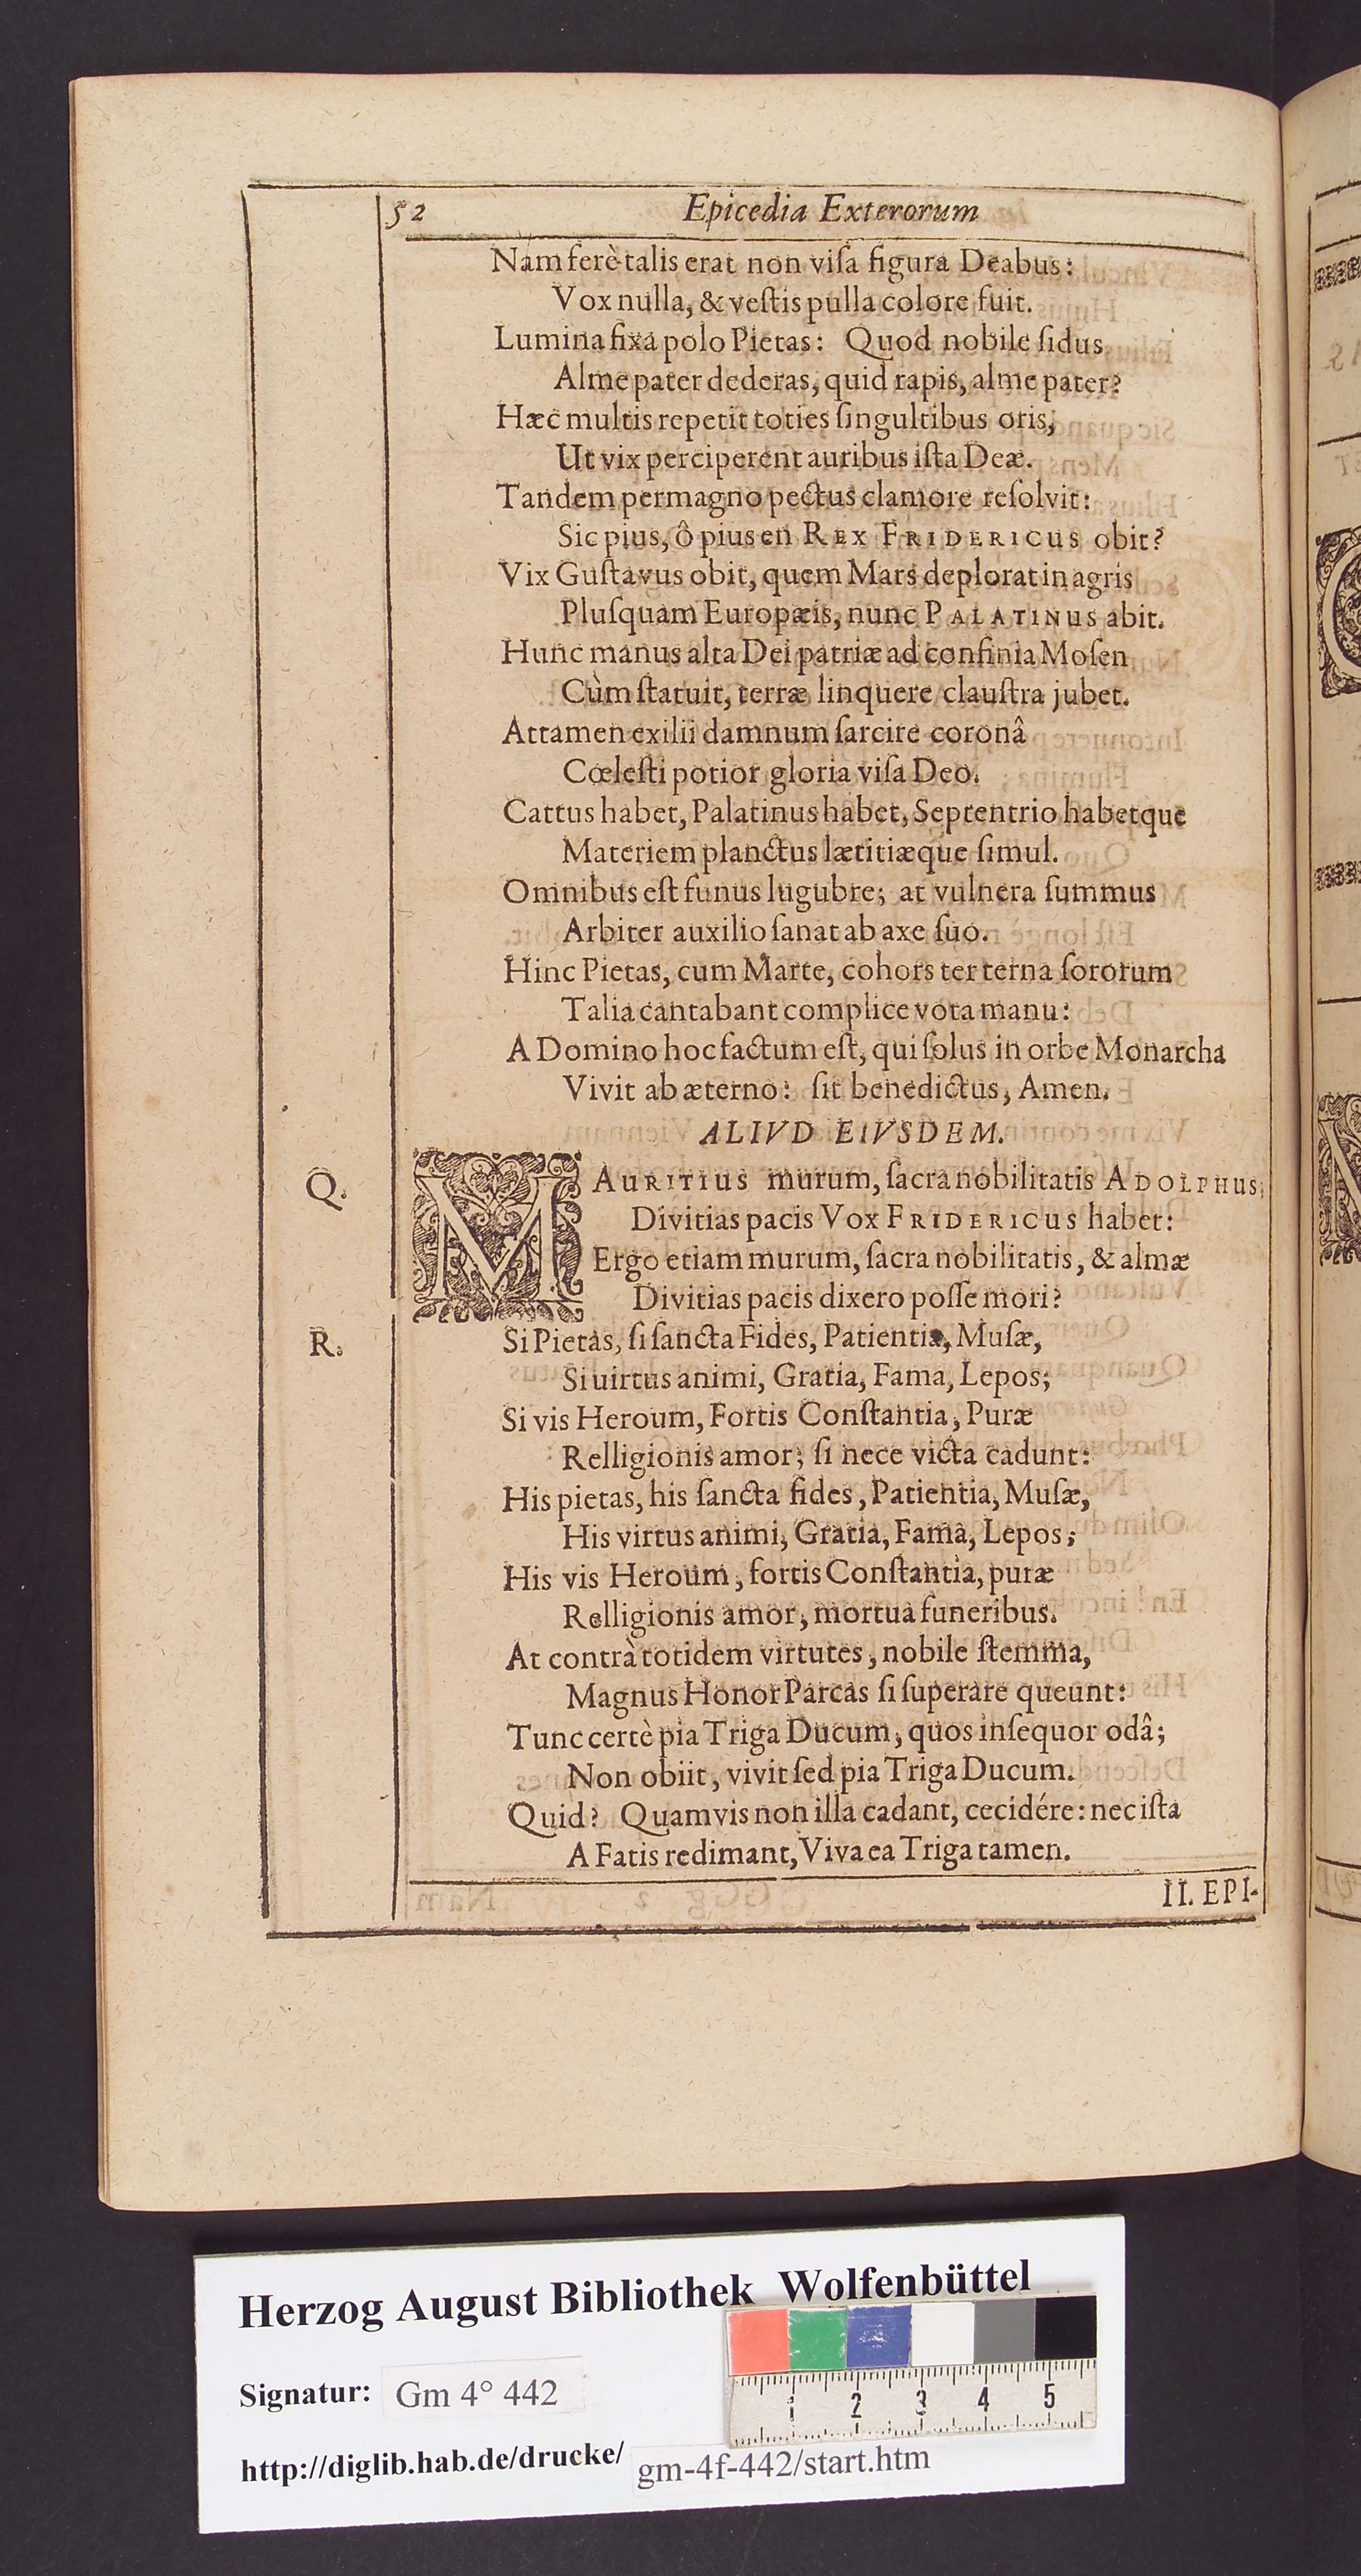 52 Epicedia Exterorum
Nam ferè talis erat non viſa figura Deabus:
Vox nulla, & veſtis pulla colore fuit.
Lumina fixa polo Pietas: Quod nobile ſidus
Alme pater dederas, quid rapis, alme pater?
Hæc multis repetit toties ſingultibus oris,
Ut vix perciperent auribus iſta Deæ.
Tandem permagno pectus clamore reſolvit:
Sic pius, ô pius en REX FRIDERICUS obit?
Vix Guſtavus obit, quem Mars deplorat in agris
Pluſquam Europæis, nunc PALATINUS abit.
Hunc manus alta Dei patriæ ad confinia Moſen
Cùm ſtatuit, terræ linquere clauſtra jubet.
Attamen exilii damnum ſarcire coronâ
Cœleſti potior gloria viſa Deo.
Cattus habet, Palatinus habet, Septentrio habetque
Materiem planctus lætitiæque ſimul.
Omnibus eſt funus lugubre; at vulnera ſummus
Arbiter auxilio ſanat ab axe ſuo.
Hinc Pietas, cum Marte, cohors ter terna ſororum
Talia cantabant complice vota manu:
A Domino hoc factum eſt, qui ſolus in orbe Monarcha
Vivit ab æterno: ſit benedictus, Amen.
ALIVD EIVSDEM.
Q. MAURITIUS murum, ſacra nobilitatis ADOLPHUS;
Divitias pacis Vox FRIDERICUS habet:
Ergo etiam murum, ſacra nobilitatis, & almæ
Divitias pacis dixero poſſe mori?
R. Si Pietas, ſi ſancta Fides, Patientia, Muſæ,
Si uirtus animi, Gratia, Fama, Lepos;
Si vis Heroum, Fortis Conſtantia, Puræ
Relligionis amor; ſi nece victa cadunt:
His pietas, his ſancta fides, Patientia, Muſæ,
His virtus animi, Gratia, Fama, Lepos;
His vis Heroum, fortis Conſtantia, puræ
Relligionis amor, mortua funeribus.
At contrà totidem virtutes, nobile ſtemma,
Magnus Honor Parcas ſi ſuperare queunt:
Tunc certè pia Triga Ducum, quos inſequor odâ;
Non obiit, vivit ſed pia Triga Ducum.
Quid? Quamvis non illa cadant, cecidére: nec iſta
A Fatis redimant, Viva ea Triga tamen.
II. EPI-
Herzog August Bibliothek Wolfenbüttel
Signatur: Gm 4° 442
http://diglib.hab.de/drucke/ gm-4f-442/start.htm
1 2 3 4 5